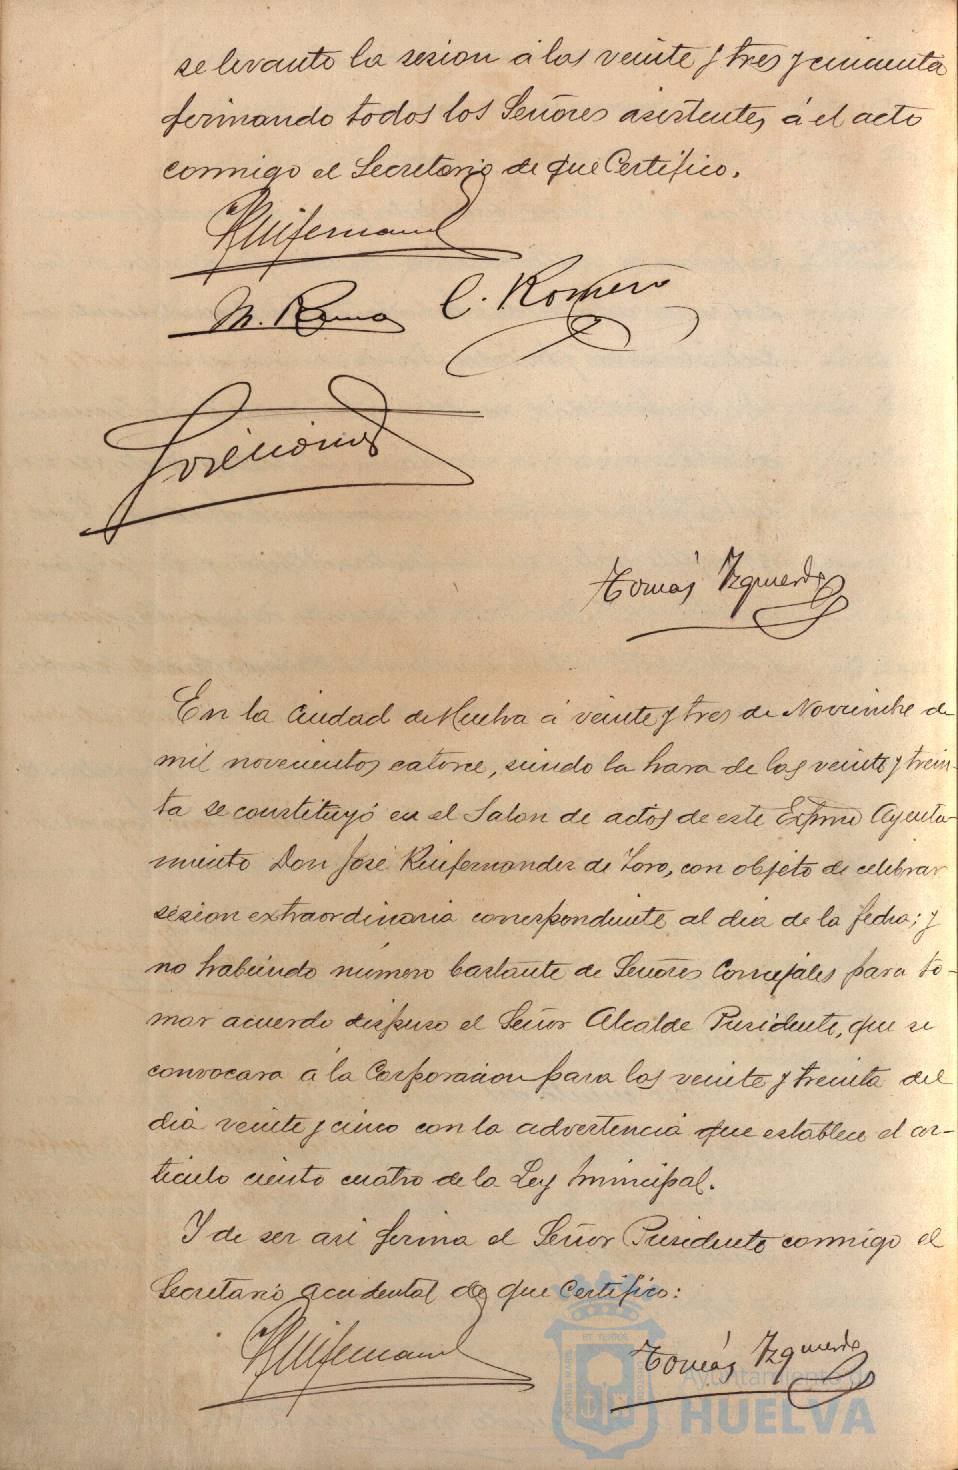 se levanto la sesion á las veinte y tres y cincuenta
firmando todos los Señores asistentes á el acto
conmigo el Secretario de que Certifico.
M.
C. Romero
Tomás Izquierdo
En la Ciudad de Huelva á veinte y tres de Noviembre de
mil novecientos catorce, siendo la hora de las veinte y trein-
ta se constituyó en el Salon de actos de este Exmo Ayunta-
miento Don José Ruifernandez de Toro, con objeto de celebrar
sesion extraordinaria correspondiente al dia de la fecha; y
no habiendo número bastante de Señores Concejales para to-
mar acuerdo dispuso el Señor Alcalde Presidente, que se
convocara á la Corporacion para las veinte y treinta del
dia veinte y cinco con la advertencia que establece el ar-
ticulo ciento cuatro de la Ley Municipal.
Y de ser asi firma el Señor Presidente conmigo el
Secretario accidental de que Certifico:
Tomás Izquierdo
Ayuntamiento de
HUELVA